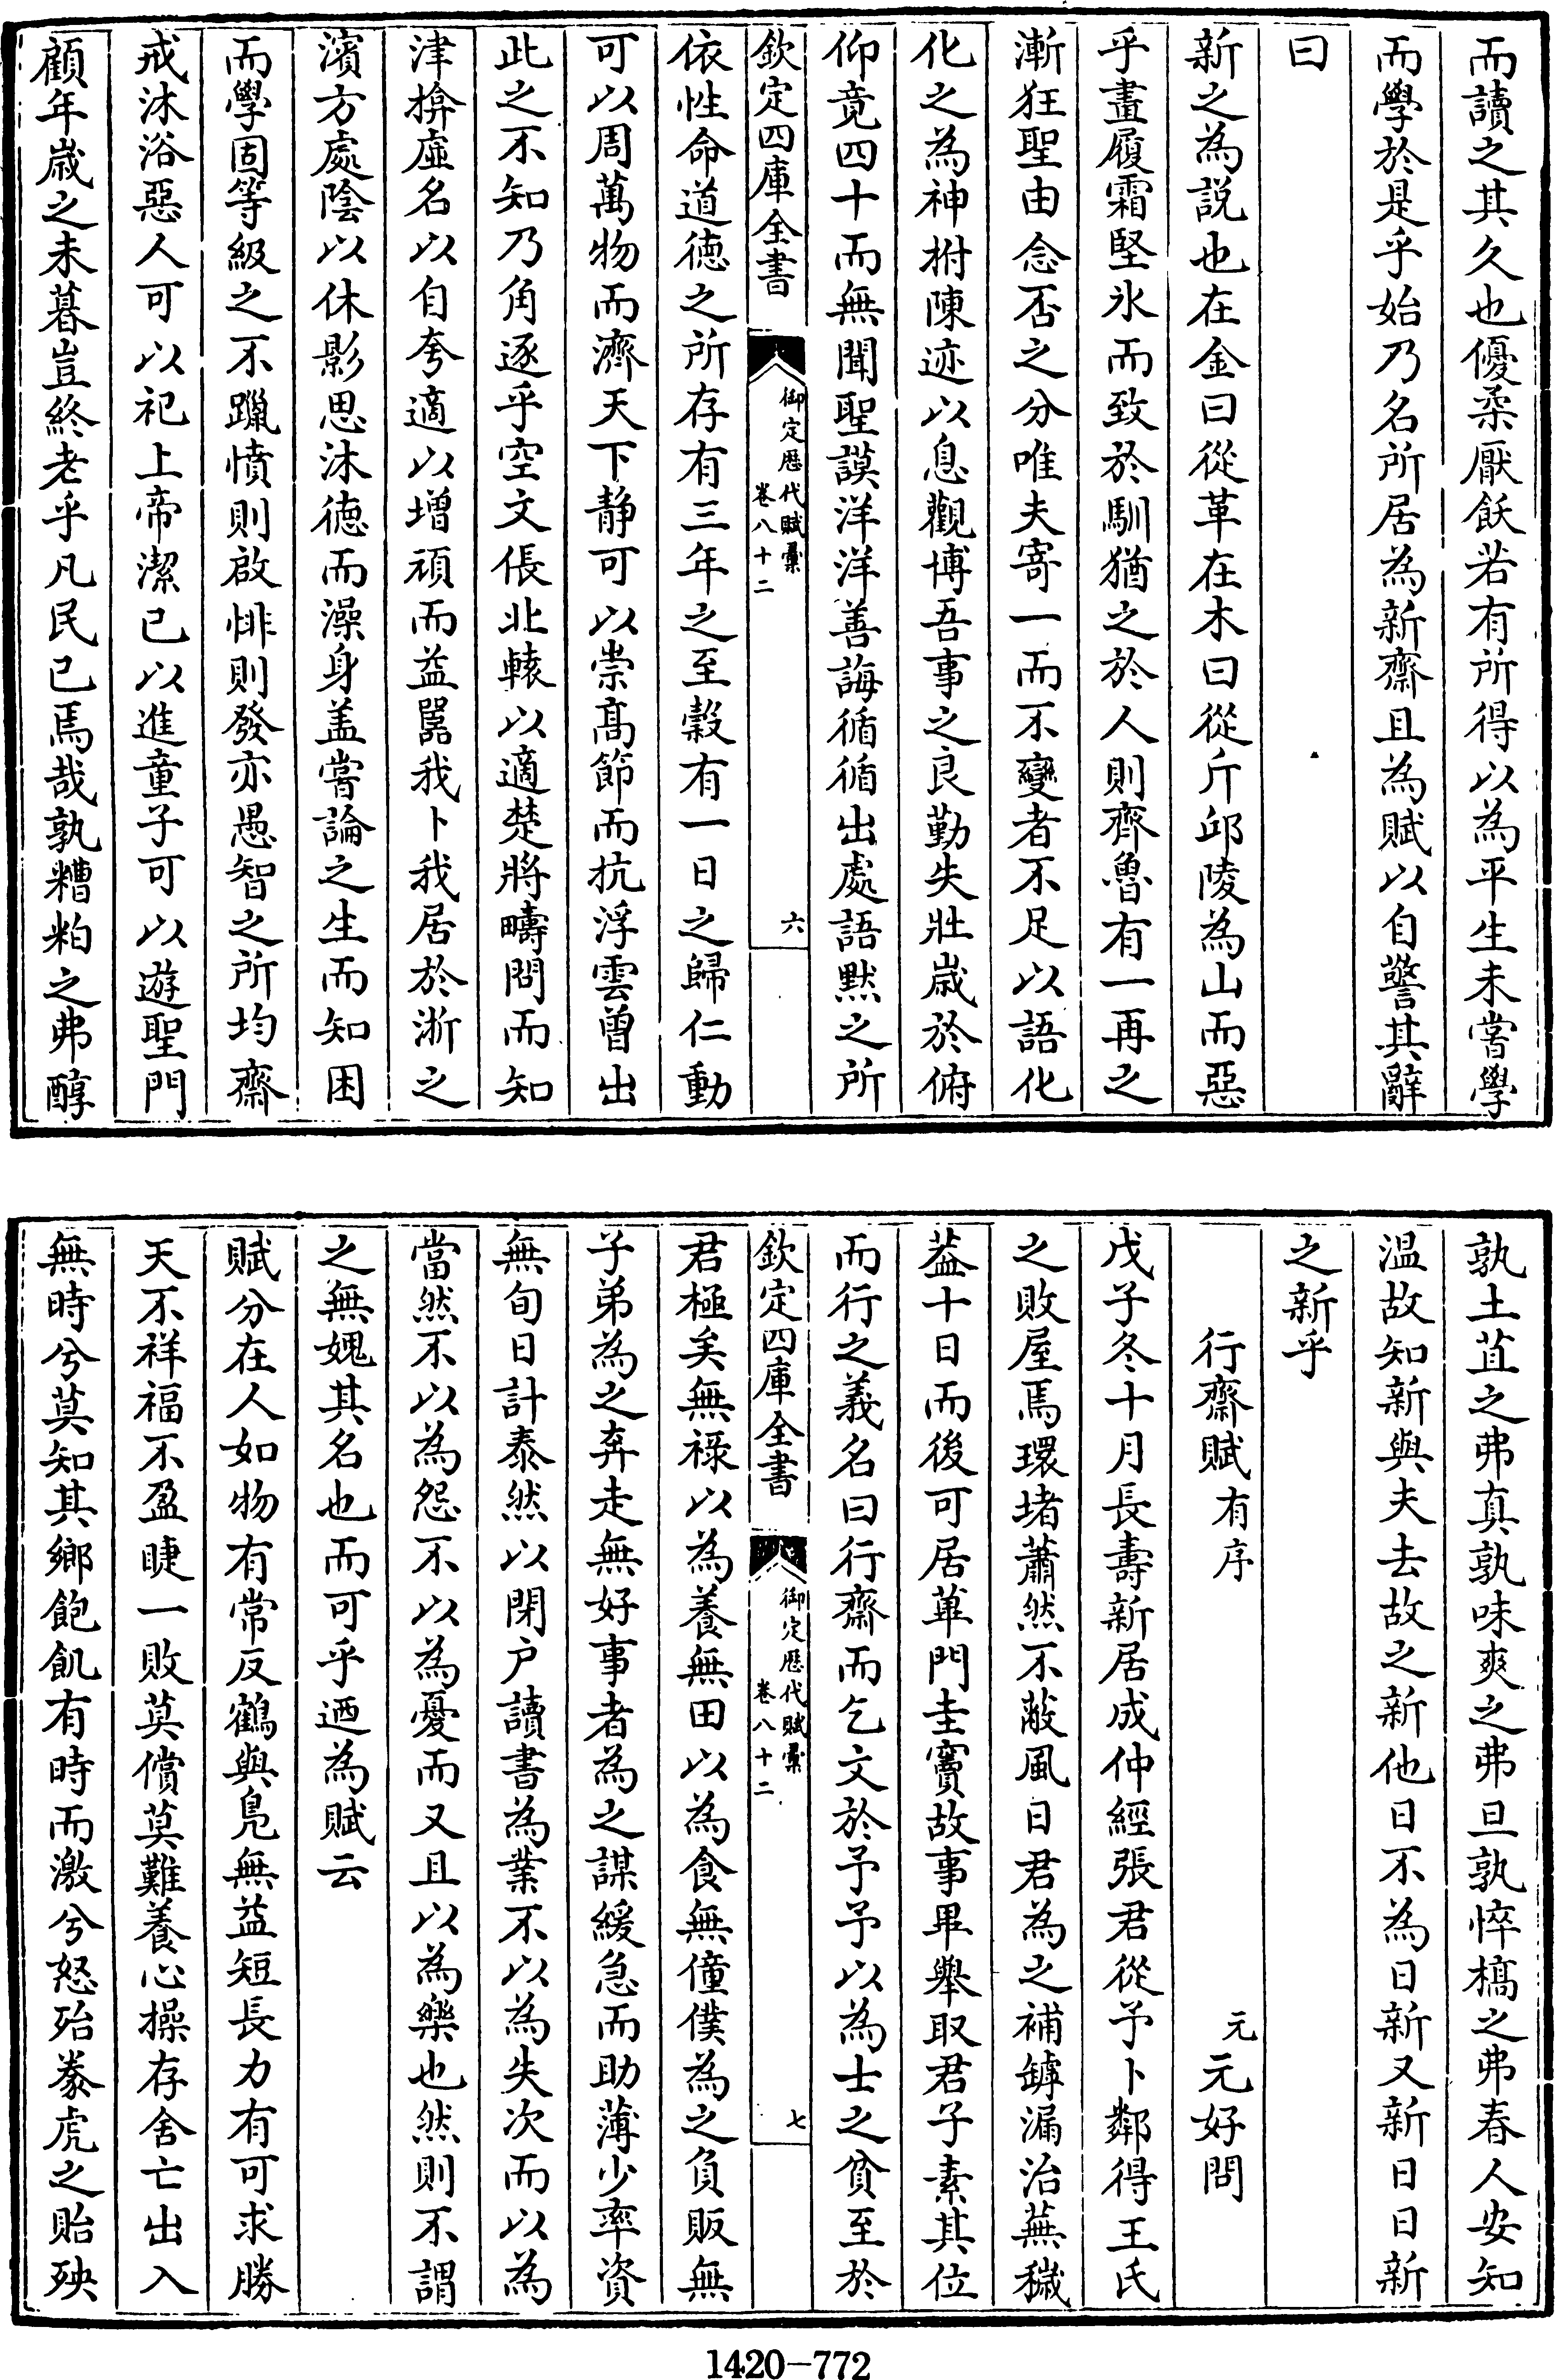 而讀之其久也優柔厭飫若有所得以為平生未嘗學
而學於是乎始乃名所居為新齋且為賦以自警其辭
曰
新之為説也在金曰從革在木曰從斤邱陵為山而惡
乎畫履霜堅氷而致於馴猶之於人則齊魯有一再之
漸狂聖由念否之分唯夫寄一而不變者不足以語化
化之為神拊陳迹以息觀博吾事之良勤失壯嵗於俯
仰竟四十而無聞聖謨洋洋善誨循循出處語黙之所
欽定四庫全書
御定歴代賦彙
卷八十二
六
依性命道徳之所存有三年之至榖有一日之歸仁動
可以周萬物而濟天下静可以崇髙節而抗浮雲曽出
此之不知乃角逐乎空文倀北轅以適楚將疇問而知
津揜虚名以自夸適以増頑而益嚚我卜我居於淅之
濱方處隂以休影思沐徳而澡身盖嘗論之生而知困
而學固等級之不躐憤則啟悱則發亦愚智之所均齋
戒沐浴惡人可以祀上帝潔已以進童子可以遊聖門
顧年嵗之未暮豈終老乎凡民已焉哉孰糟粕之弗醇
孰土苴之弗真孰味爽之弗旦孰悴槁之弗春人安知
温故知新與夫去故之新他日不為日新又新日日新
之新乎
行齋賦有序
元元好問
戊子冬十月長壽新居成仲經張君從予卜鄰得王氏
之敗屋焉環堵蕭然不蔽風日君為之補罅漏治蕪穢
葢十日而後可居篳門圭竇故事畢舉取君子素其位
而行之義名曰行齋而乞文於予予以為士之貧至於
欽定四庫全書
御定歴代賦彙
卷八十二
七
君極矣無禄以為養無田以為食無僮僕為之負販無
子弟為之奔走無好事者為之謀緩急而助薄少率資
無旬日計泰然以閉户讀書為業不以為失次而以為
當然不以為怨不以為憂而又且以為樂也然則不謂
之無媿其名也而可乎迺為賦云
賦分在人如物有常反鶴與鳬無益短長力有可求勝
天不祥福不盈睫一敗莫償莫難養心操存舍亡出入
無時兮莫知其鄉飽飢有時而激兮怒殆豢虎之貽殃
1420-772